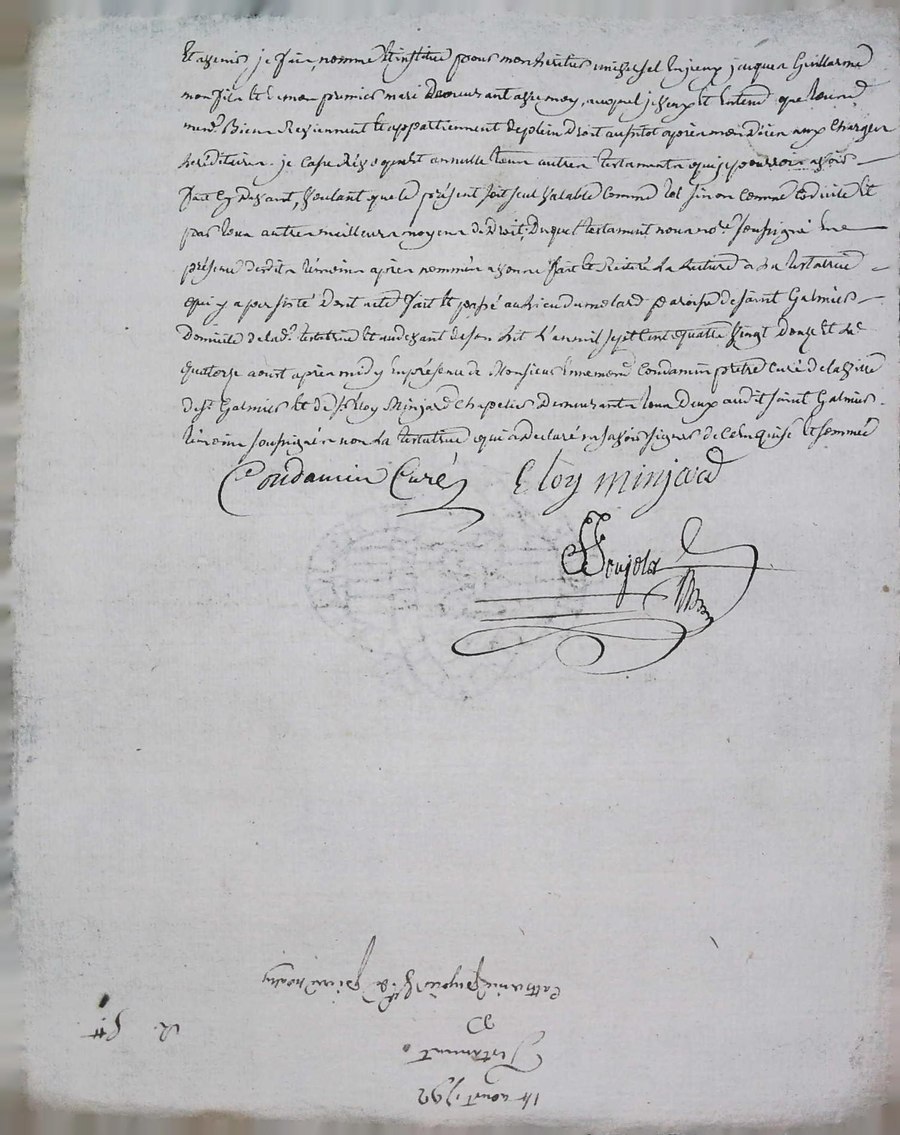 Et avenir, je fais, nomme et institue pour mon heritier universel jacques Guillarme
mon fils et de mon premier mari Demeurant avec moy, auquel je veux et Entend que
Biens Reviennent et appartiennent de plein Droit aussitot après mon Décés aux Charges
héréditaires. je Casse Révoque et annulle tous autres testaments que je pourrois avoir
fait Cy Devant, Voulant que le présent soit seul Valable Comme tel sinon Comme Codicile Et
par tous autres meilleurs moyens de Droit, Duquel testament nous no.re soussigné En
présence desdits témoins après nommés avons fait et Réitéré La lecture a La testatrice
qui y a persisté Dont acte fait et passé au Lieu du melard paroisse de Saint Galmier
Domicile de lad. testatrice Et au devant de son Lit L'an mil sept Cent quatre Vingt Douze Et Le
quatorze aoust après midy En présence de Monsieur Ennemond Condamin prêtre Curé de la Ville
de St Galmier Et de sr Eloy Minjard Chapelier Demeurants tous Deux audit Saint Galmier
témoins soussignés non La testatrice qui a Déclaré ne savoir signer de ce Enquise Et sommée
Condamin Curé Eloy minjard
Catherine
Testament
14 aoust 1792